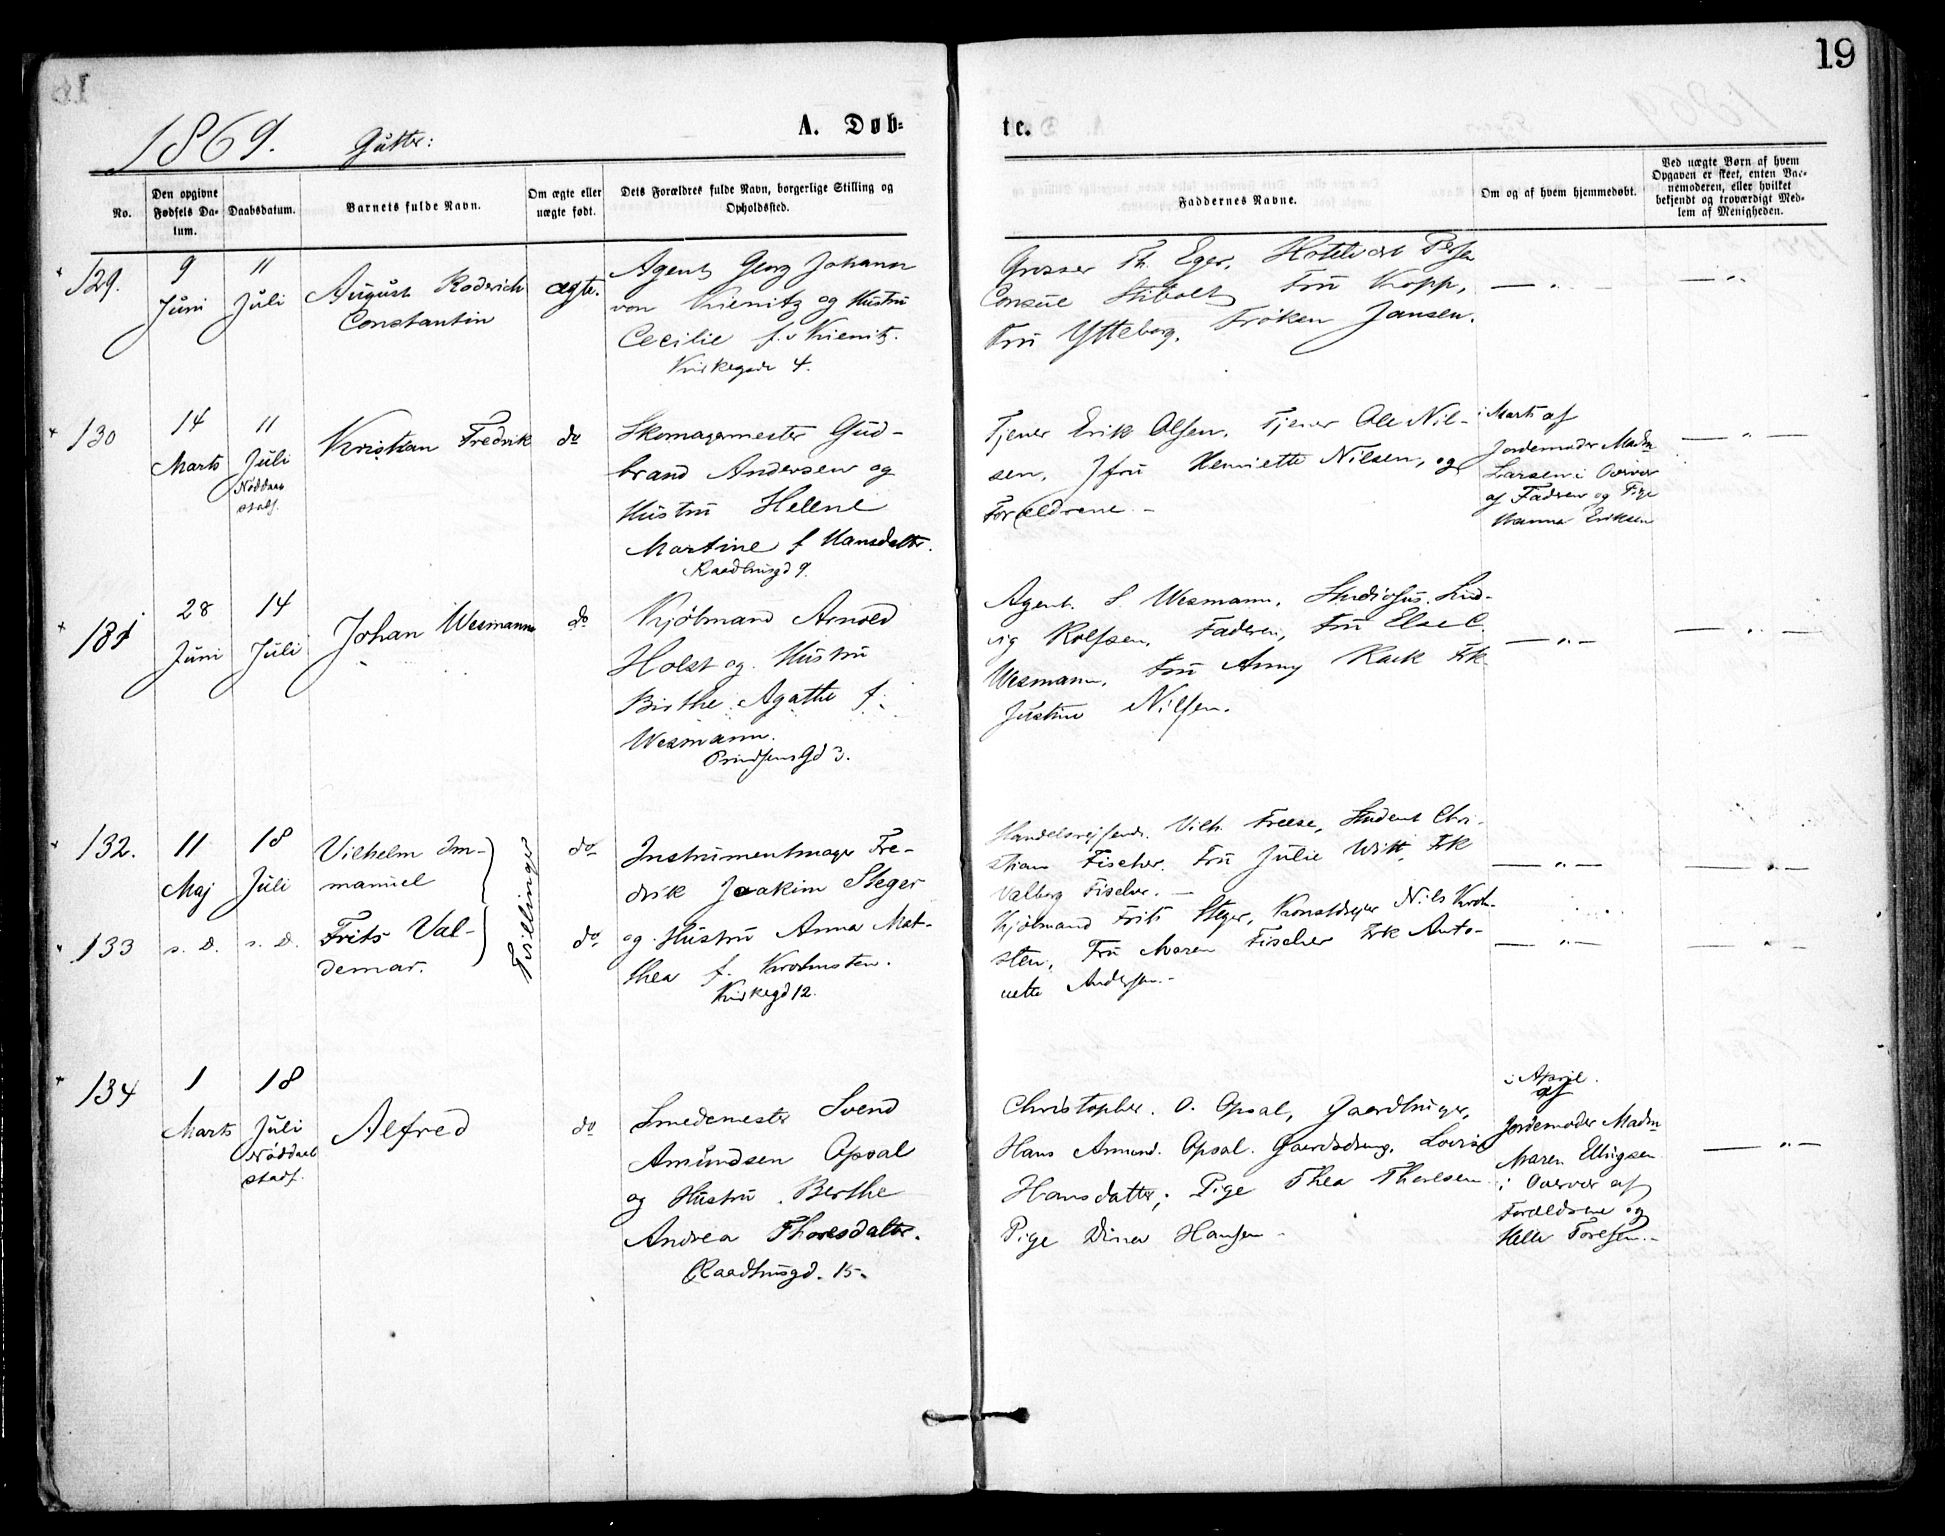 19
1869. Gutter:
A. Døb-
te.
No.
Den opgivne Fødsels Da-
tum.
Daabsdatum.
Barnets fulde Navn.
Om ægte eller
uægte født.
Dets Forældres fulde Navn, borgerlige Stilling og
Opholdssted.
Faddernes Navne.
Om og af hvem hjemmedøbt.
Ved uægte Børn af hvem
Opgaven er skeet, enten Bar-
nemoderen, eller hvilket
bekjendt og troværdigt Med-
lem af Menigheden.
129.
9
Juni
11
Juli
August Roderich
Constantin
ægte.
Agent Georg Johann
von Kienitz og Hustru
Cecilie f. v Kienitz.
Kirkegade 4.
Grosser Th. Eger,
Consul Stibolt Fru Kopp,
Fru Ytteborg, Frøken Jansen.
— " —
— " —
130
14
Marts
11
Juli
Nøddaab
stadf.
Kristian Fredrik
do
Skomagermester Gud-
brand Andersen og
Hustru Hellene
Martine f Hansdatter.
Raadhusgd 9.
Tjener Erik Olsen, Tjener Ole Nil-
sen, Jfru Henriette Nilsen, og
Forældrene. -
i Marts af
Jordemoder Madm
Larsen i Overvær
af Faderen og Pige
Hanna Eriksen
— " —
131
28
Juni
14
Juli
Johan Wesmann
do
Kjøbmand Arnold
Holst og Hustru
Birthe Agathe f.
Wesmann.
Prindsens Gd 3.
Agent S. Wesmann, Studiosus Lud-
vig Rolfsen, Faderen, Fru Else C.
Wesmann, Fru Anny Rack Frk
Justine Nilsen.
— " —
— " —
132.
11
Maj
18
Juli
Vilhelm Im-
manuel
Tvillinger
do
Instrumentmager Fre-
drik Joakim Steger
og Hustru Anna Mat-
thea f. Krohnsten.
Kirkegd 12.
Handelsrejsende Vilh. Freese, Student Chri-
stian Fischer, Fru Julie Witt, Frk
Valborg Fischer. —
— " —
— " —
133
s. D.
s. D.
Frits Val-
demar.
do
Kjøbmand Frits Steger, Nils Kroh-
sten, Fru Maren Fischer Frk Anto-
nette Andersen. -
— " —
— " —
134
1
Marts
18
Juli
Nøddaab
stadf.
Alfred
do
Smedemester Svend
Amundsen Opsal
og Hustru Berthe
Andrea Thoresdatter.
Raadhusgd. 15.
Christopher O. Opsal, Gaardbruger,
Hans Amund. Opsal. Gaardsdreng, Lovise
Hansdatter; Pige Thea Theresen
Pige Dina Hansen -
i April.
af
Jordemoder Madm
Maren Ellingsen
i Overvær af
Forældrene og
Helle Toresen. -
— " —